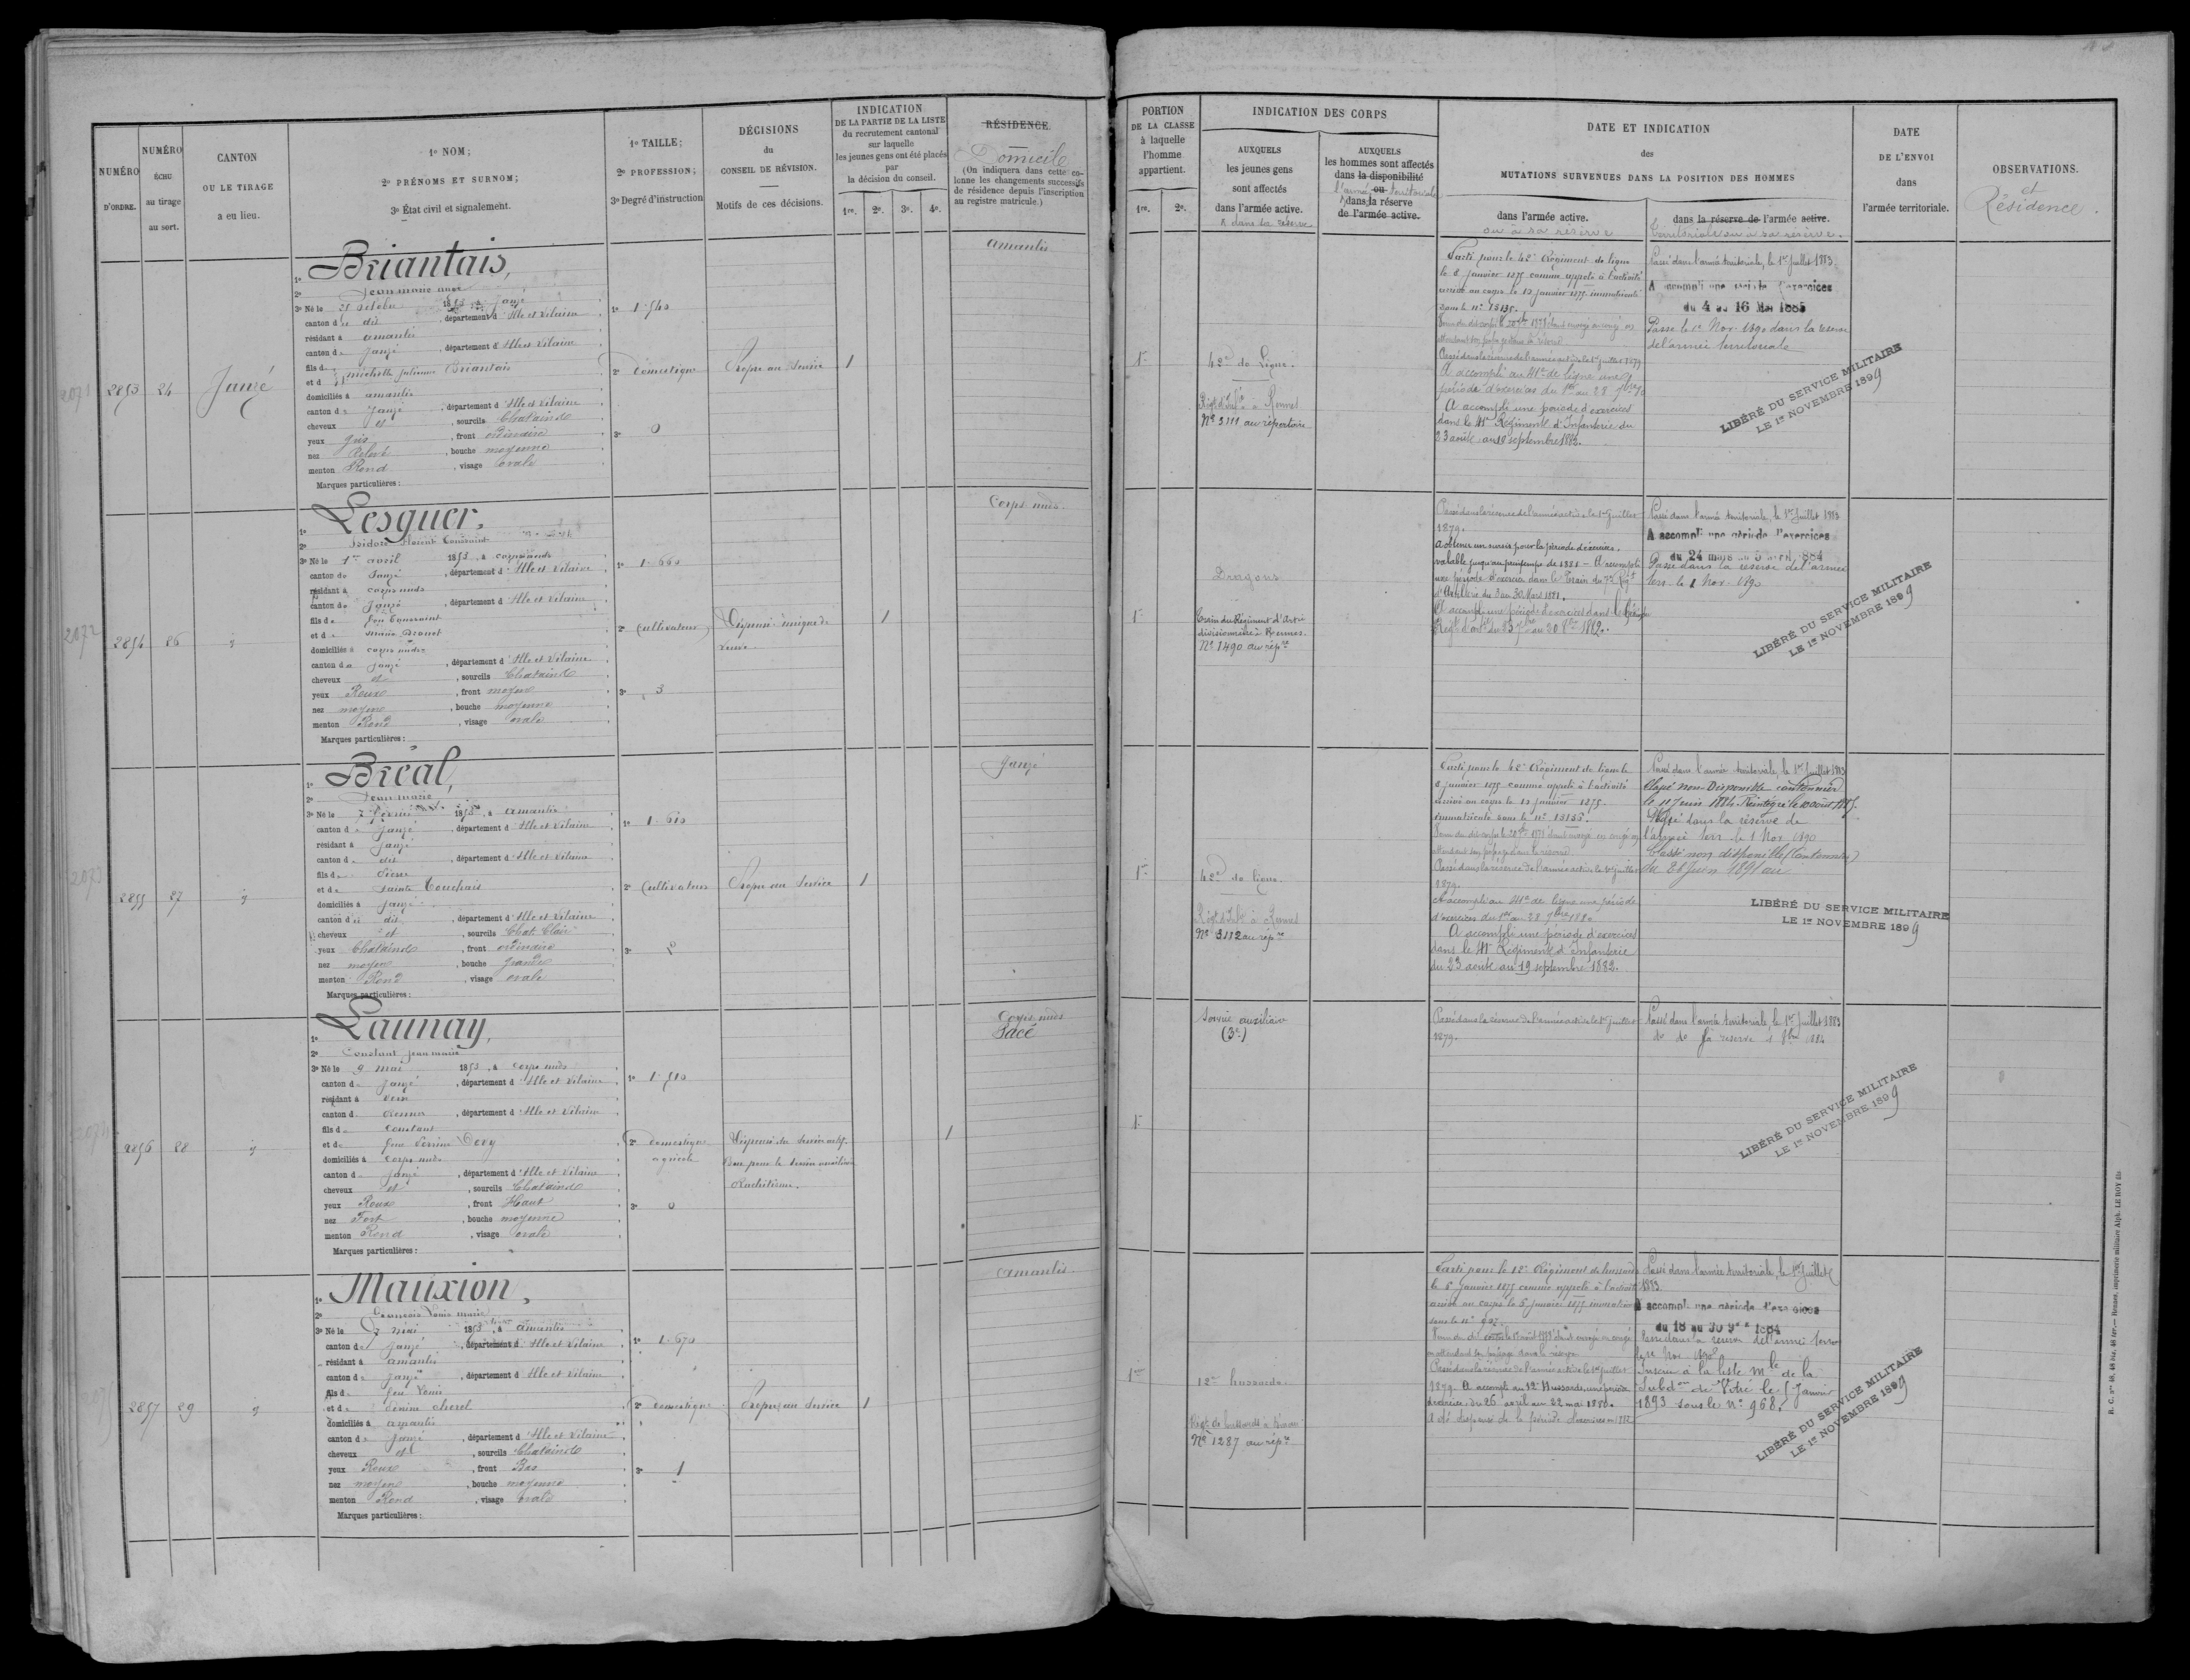 NUMÉRO
D'ORDRE.
NUMÉRO
ÉCHU
au tirage
au sort.
CANTON
OU LE TIRAGE
a eu lieu.
1º NOM;
2º PRÉNOMS ET SURNOM;
3º État civil et signalement.
1º TAILLE;
2º PROFESSION;
3º Degré d'instruction
DÉCISIONS
du
CONSEIL DE RÉVISION.
Motifs de ces décisions.
INDICATION
DE LA PARTIE DE LA LISTE
du recrutement cantonal
sur laquelle
les jeunes gens ont été placés
par
la décision du conseil.
1re. 2e. 3e. 4e.
RÉSIDENCE.
Domicile
(On indiquera dans cette co-
lonne les changements successifs
de résidence depuis l'inscription
au registre matricule.)
PORTION
DE LA CLASSE
à laquelle
l'homme
appartient.
1re. 2e.
INDICATION DES CORPS
AUXQUELS
les jeunes gens
sont affectés
dans l'armée active.
& dans sa réserve
AUXQUELS
les hommes sont affectés
dans la disponibilité
ou
l'armée territoriale
dans la réserve
de l'armée active.
DATE ET INDICATION
des
MUTATIONS SURVENUES DANS LA POSITION DES HOMMES
dans l'armée active.
ou à sa réserve
dans la réserve de l'armée active.
territoriale ou à sa réserve.
DATE
DE L'ENVOI
dans
l'armée territoriale.
OBSERVATIONS.
et
Résidence.
2071
2853 24 Janzé
1º Briantais,
2º Jean marie
3º Né le 25 octobre 1853, à Janzé
canton de dit, département d'Ille et Vilaine
résidant à amanlis
canton de Janzé, département d'Ille et Vilaine
fils de
et d michelle julienne Briantais
domiciliés à amanlis
canton de Janzé, département d'Ille et Vilaine
cheveux et, sourcils Chatains
yeux gris, front ordinaire
nez, bouche moyenne
menton Rond, visage ovale
Marques particulières:
1º 1.540
2º Domestique
3º 0
Propre au Service
1
amanlis
1re
42e de Ligne.
Régt d'Infie à Rennes
Nº 3111 au répertoire
Parti pour le 42e Régiment de ligne
le 8 janvier 1875 comme appelé à l'activité
arrivé au corps le 13 janvier 1875 immatriculé
sous le nº 13135.
Passé dans la réserve de l'armée active le 1er juillet 1879
A accompli au 41e de ligne une
période d'exercices du 1er au 28 7bre 80
A accompli une période d'exercices
dans le 41e Régiment d'Infanterie du
23 août au 19 septembre 1882.
Passé dans l'armée territoriale, le 1er Juillet 1883.
A accompli une période d'exercices
du 4 au 16 Mai 1885
Passé le 1er Nov. 1890 dans la réserve
de l'armée territoriale
LIBÉRÉ DU SERVICE MILITAIRE
LE 1er NOVEMBRE 1899
2072
2854 26
1º Lesguer,
2º Isidore Florent Toussaint
3º Né le 1er avril 1853, à corps nuds
canton de Janzé, département d'Ille et Vilaine
résidant à corps nuds
canton de Janzé, département d'Ille et Vilaine
fils de feu Toussaint
et de marie Drouet
domiciliés à corps nuds
canton de Janzé, département d'Ille et Vilaine
cheveux et, sourcils Chatains
yeux Roux, front moyen
nez moyen, bouche moyenne
menton Rond, visage ovale
Marques particulières:
1º 1.660
2º Cultivateur
3º 3
Dispensé
1
Corps nuds.
1re
Dragons
Train du Régiment d'Artie
divisionnaire à Rennes.
Nº 1490 au répre
Passé dans la réserve de l'armée active le 1er juillet
1879.
A obtenu un sursis pour la période d'exercices.
valable jusqu'au printemps de 1881 - A accompli
une période d'exercices dans le Train du 7e Régt
d'Artillerie du 3 au 30 Mars 1881.
Passé dans l'armée territoriale, le 1er Juillet 1883
A accompli une période d'exercices
du 24 mars au 5 avril 1884
Passé dans la réserve de l'armée
terr. le 1 Nov. 1890
LIBÉRÉ DU SERVICE MILITAIRE
LE 1er NOVEMBRE 1899
2073
2855 27
1º Bréal,
2º Jean marie
3º Né le 7 février 1853, à amanlis
canton de Janzé, département d'Ille et Vilaine
résidant à Janzé
canton de dit, département d'Ille et Vilaine
fils de Pierre
et de Sainte Touchais
domiciliés à Janzé
canton de dit, département d'Ille et Vilaine
cheveux et, sourcils Chat. Clair
yeux Chatains, front ordinaire
nez moyen, bouche grande
menton Rond, visage ovale
Marques particulières:
1º 1.610
2º Cultivateur
3º
Propre au Service
1
Janzé
1re
42e de ligne.
Régt d'Infie à Rennes
Nº 3112 au répre
Parti pour le 42e Régiment de ligne le
8 janvier 1875 comme appelé à l'activité
arrivé au corps le 13 janvier 1875.
immatriculé sous le nº 13136.
Passé dans la réserve de l'armée active le 1er juillet
1879.
A accompli au 41e de ligne une période
d'exercices du 1er au 28 7bre 1880
A accompli une période d'exercices
dans le 41e Régiment d'Infanterie
du 23 août au 19 septembre 1882.
Passé dans l'armée territoriale, le 1er Juillet 1883
Classé non Disponible cantonnier
le 11 Juin 1884. Réintégré le 10 août 1885.
Passé dans la réserve de
l'armée terr. le 1 Nov 1890
Classé non disponible (Cantonnier)
du 28 Juin 1891 au
LIBÉRÉ DU SERVICE MILITAIRE
LE 1er NOVEMBRE 1899
2074
2856 28
1º Launay,
2º Constant jean marie
3º Né le 9 mai 1853, à corps nuds
canton de Janzé, département d'Ille et Vilaine
résidant à Vern
canton d Rennes, département d'Ille et Vilaine
fils de Constant
et de feue Perrine
domiciliés à corps nuds
canton de Janzé, département d'Ille et Vilaine
cheveux et, sourcils Chatains
yeux Roux, front Haut
nez Fort, bouche moyenne
menton Rond, visage ovale
Marques particulières:
1º 1.510
2º domestique
agricole
3º 0
Dispensé du service actif.
Bon pour le service auxiliaire
Rachitisme.
1
Corps nuds
Sacé
1re
Service auxiliaire
(3e)
Passé dans la réserve de l'armée active le 1er juillet
1879.
Passé dans l'armée territoriale, le 1er Juillet 1883
LIBÉRÉ DU SERVICE MILITAIRE
LE 1er NOVEMBRE 1899
2857 29
1º Mauxion,
2º François Louis marie
3º Né le 7 mai 1853, à amanlis
canton de Janzé, département d'Ille et Vilaine
résidant à amanlis
canton de Janzé, département d'Ille et Vilaine
fils de feu Louis
et de
domiciliés à amanlis
canton de Janzé, département d'Ille et Vilaine
cheveux et, sourcils Chatains
yeux Roux, front Bas
nez moyen, bouche moyenne
menton Rond, visage ovale
Marques particulières:
1º 1.670
2º domestique
3º 1
Propre au Service
1
amanlis
1re
12e hussards.
Régt de hussards à Dinan
Nº 1287 au répre
Parti pour le 12e Régiment de hussards
le 5 janvier 1875 comme appelé à l'activité
arrivé au corps le 5 janvier 1875 immatriculé
Passé dans la réserve de l'armée active le 1er juillet
1879. A accompli au 12e Hussards, une période
d'exercices du 26 avril au 22 mai 1880.
A été dispensé de la période d'exercices en 1882
Passé dans l'armée territoriale, le 1er Juillet
1883.
A accompli une période d'exercices
du 18 au 30 9bre 1884
Passé dans la réserve de l'armée terre
le 1er Nov. 1890
Inscrit à la liste mle de la
Subdon de Vitré le 5 Janvier
1893 sous le Nº 968.
LIBÉRÉ DU SERVICE MILITAIRE
LE 1er NOVEMBRE 1899